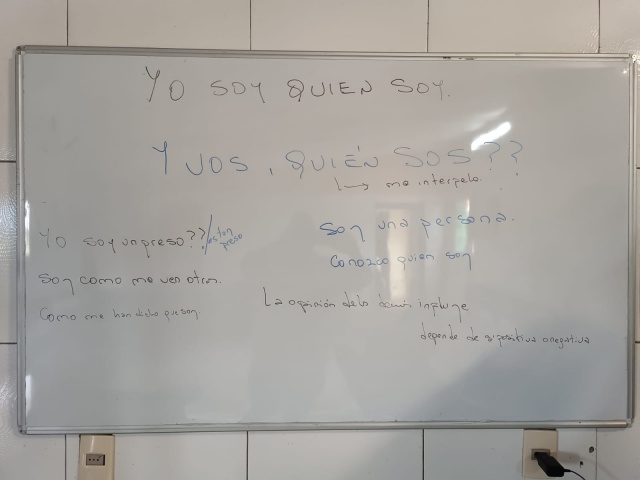 YO SOY QUIEN SOY.
Y VOS, QUIÉN SOS??
↳ me interpela.
Yo soy un preso??/estoy
preso
soy como me ven otros.
Como me han dicho que soy.
Soy una persona.
Conozco quien soy
La opinión de los demás influye
depende de si positiva o negativa